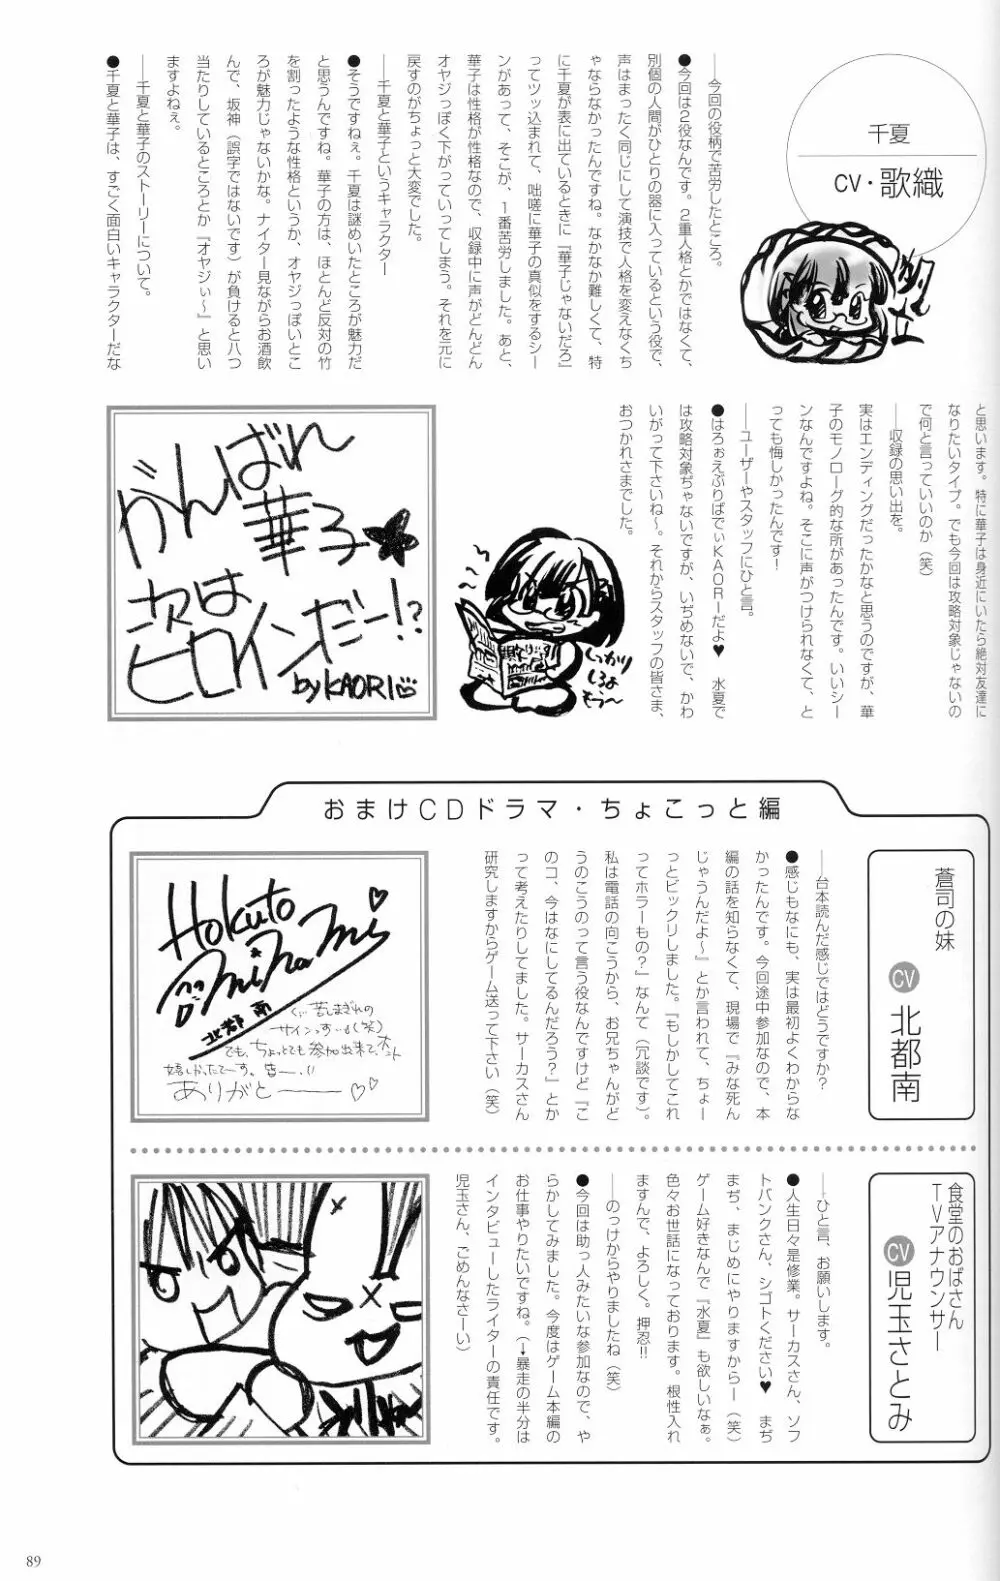 千夏
CV・歌織
――今回の役柄で苦労したところ。
●今回は2役なんです。2重人格とかではなくて、
別個の人間がひとりの器に入っているという役で、
声はまったく同じにして演技で人格を変えなくち
ゃならなかったんですね。なかなか難しくて、特
に千夏が表に出ているときに『華子じゃないだろ』
ってツッ込まれて、咄嗟に華子の真似をするシー
ンがあって、そこが、1番苦労しました。あと、
華子は性格が性格なので、収録中に声がどんどん
オヤジっぽく下がっていってしまう。それを元に
戻すのがちょっと大変でした。
――千夏と華子というキャラクター
●そうですねぇ。千夏は謎めいたところが魅力だ
と思うんですね。華子の方は、ほとんど反対の竹
を割ったような性格というか、オヤジっぽいとこ
ろが魅力じゃないかな。ナイター見ながらお酒飲
んで、坂神（誤字ではないです）が負けると八つ
当たりしているところとか『オヤジぃ〜』と思い
ますよねぇ。
――千夏と華子のストーリーについて。
●千夏と華子は、すごく面白いキャラクターだな
と思います。特に華子は身近にいたら絶対友達に
なりたいタイプ。でも今回は攻略対象じゃないの
で何と言っていいのか（笑）
――収録の思い出を。
実はエンディングだったかなと思うのですが、華
子のモノローグ的な所があったんです。いいシー
ンなんですよね。そこに声がつけられなくて、と
っても悔しかったんです！
――ユーザーやスタッフにひと言。
●はろぉえぶりばでぃKAORIーだよ♥ 水夏で
は攻略対象ぢゃないですが、いぢめないで、かわ
いがって下さいね〜。それからスタッフの皆さま、
おつかれさまでした。
しっかり
しろよ
もう〜
がんばれ
華子★
次は
ヒロインだー！？
by KAORI
おまけCDドラマ・ちょこっと編
蒼司の妹
CV 北都南
――台本読んだ感じではどうですか？
●感じもなにも、実は最初よくわからな
かったんです。今回途中参加なので、本
編の話を知らなくて、現場で『みな死ん
じゃうんだよ〜』とか言われて、ちょー
っとビックリしました。『もしかしてこれ
ってホラーもの？』なんて（冗談です）。
私は電話の向こうから、お兄ちゃんがど
うのこうのって言う役なんですけど『こ
のコ、今はなにしてるんだろう？』とか
って考えたりしてました。サーカスさん
研究しますからゲーム送って下さい（笑）
Hokuto
Minami
北都 南
苦しまぎれの
サインっすー（笑）
でも、ちょっとでも参加出来て、ホント
嬉しかったでーす。皆ー。
ありがとーーー♡♡
食堂のおばさん
TVアナウンサー
CV 児玉さとみ
――ひと言、お願いします。
●人生日々是修業。サーカスさん、ソフ
トバンクさん、シゴトください♥ まぢ
まぢ、まじめにやりますからー（笑）
ゲーム好きなんで『水夏』も欲しいなぁ。
色々お世話になっております。根性入れ
ますんで、よろしく。押忍!!
――のっけからやりましたね（笑）
●今回は助っ人みたいな参加なので、や
らかしてみました。今度はゲーム本編の
お仕事やりたいですね。（→暴走の半分は
インタビューしたライターの責任です。
児玉さん、ごめんなさーい）
89